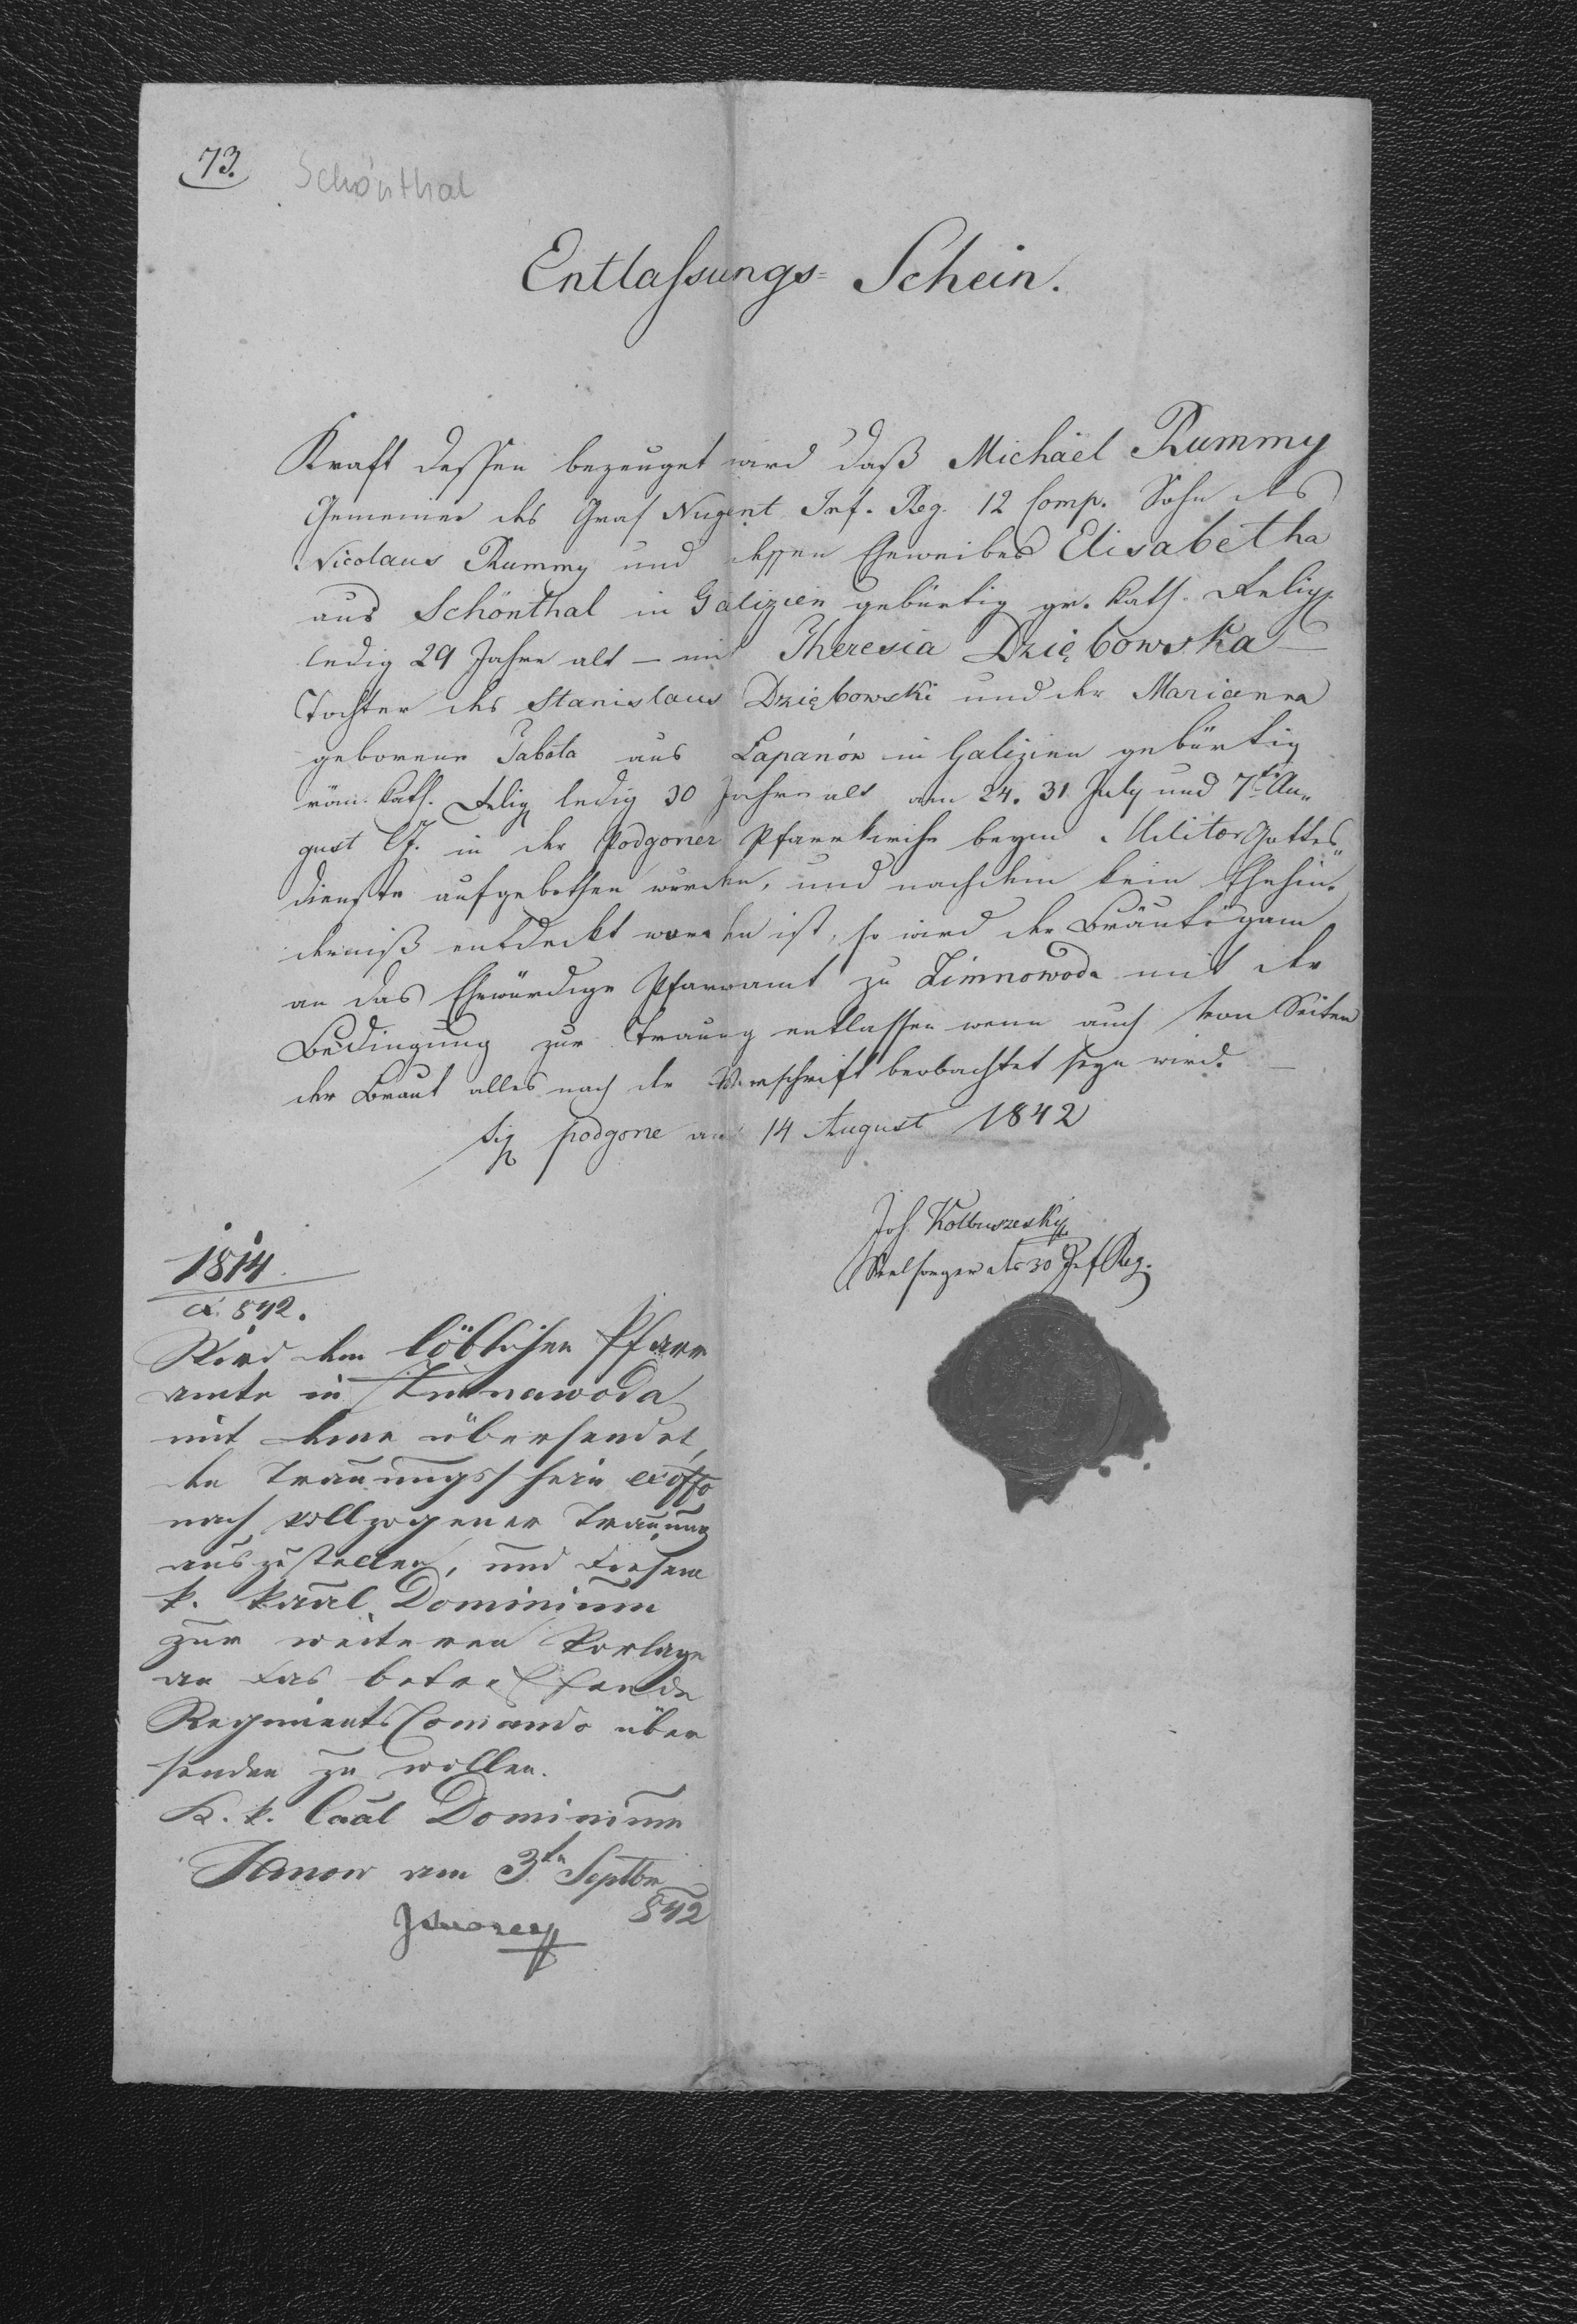 73.
Schönthal
Entlassungs= Schein.
Kraft dessen bezeuget wird daß Michäel Rummy
Gemeiner des Graf Nugent Inf. Reg. 12 Comp. Sohn des
Nicolaus Rummy und dessen Eheweibes Elisabetha
aus Schönthal in Galizien gebürtig gr. kath. Relig.
ledig 29 Jahre alt – mit Theresia Dziębowska –
Tochter des Stanislaus Dziębowski und der Marianna
geborene aus Lapanów in Galizien gebürtig
röm. kath. Relig ledig 30 Jahre alt am 24. 31 July und 7ten Au„
gust in der Podgorzer Pfarrkirche beym Militär Gottes„
dienste aufgebothen wurden, und nachdem kein Ehehin„
derniß entdeckt worden ist, so wird der Bräutigam
an das Ehrwürdige Pfarramt zu Zimnowoda mit der
Bedingung zur Trauung entlassen wenn auch von Seiten
der Braut alles nach der Vorschrift beobachtet seyn wird. –
Sig podgorze am 14 August 1842
Joh. Kolbuszesky
Seelsorger des 30 Inf Reg.
1814
a. 842.
Wird dem löblichen Pfarr
amte in Zimnawoda
mit dem übersendet,
den Trauungsschein ex offo
nach vollzogener Trauung
auszustellen, und diesem
k. kaal Dominium
zur weiteren Vorlage
an das betreffende
Regiments Comando über
senden zu wollen.
K. k. Caal Dominium
Janow am 3tn Septbr
842